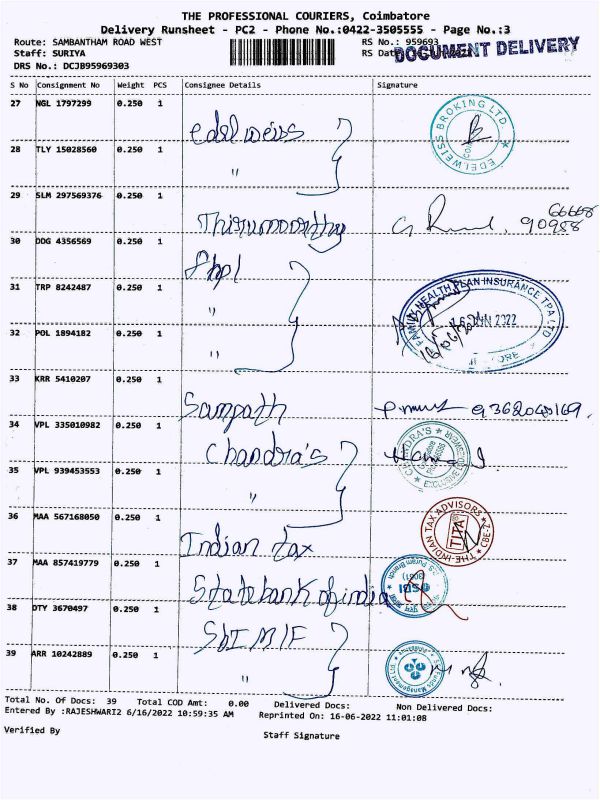 THE PROFESSIONAL COURIERS, Coimbatore
Delivery Runsheet - PC2 - Phone No.:0422-3505555 - Page No.:3
Route: SAMBANTHAM ROAD WEST RS No.: 959693
Staff: SURIYA RS Dat
DOCUMENT DELIVERY
DRS No.: DCJB95969303
S No Consignment No Weight PCS Consignee Details Signature
27 NGL 1797299 0.250 1 Edelweiss
EDELWEISS BROKING LTD
28 TLY 15028560 0.250 1 "
29 SLM 297569376 0.250 1 Thirumoorthy
90988
30 DDG 4356569 0.250 1 fhpl
31 TRP 8242487 0.250 1 "
FAMILY HEALTH PLAN INSURANCE TPA LTD
16 JUN 2022
32 POL 1894182 0.250 1 "
33 KRR 5410207 0.250 1 Sampath
34 VPL 335010982 0.250 1 Chandra's
CHANDRA'S
EXCLUSIVE
35 VPL 939453553 0.250 1 "
36 MAA 567168050 0.250 1 Indian tax
THE INDIAN TAX ADVISORS
TITA
CBE-2
37 MAA 857419779 0.250 1 State bank of india
SBI
38 DTY 3670497 0.250 1 SbI M/F
39 ARR 10242889 0.250 1 "
Total No. Of Docs: 39 Total COD Amt: 0.00 Delivered Docs: Non Delivered Docs:
Entered By :RAJESHWARI2 6/16/2022 10:59:35 AM Reprinted On: 16-06-2022 11:01:08
Verified By Staff Signature